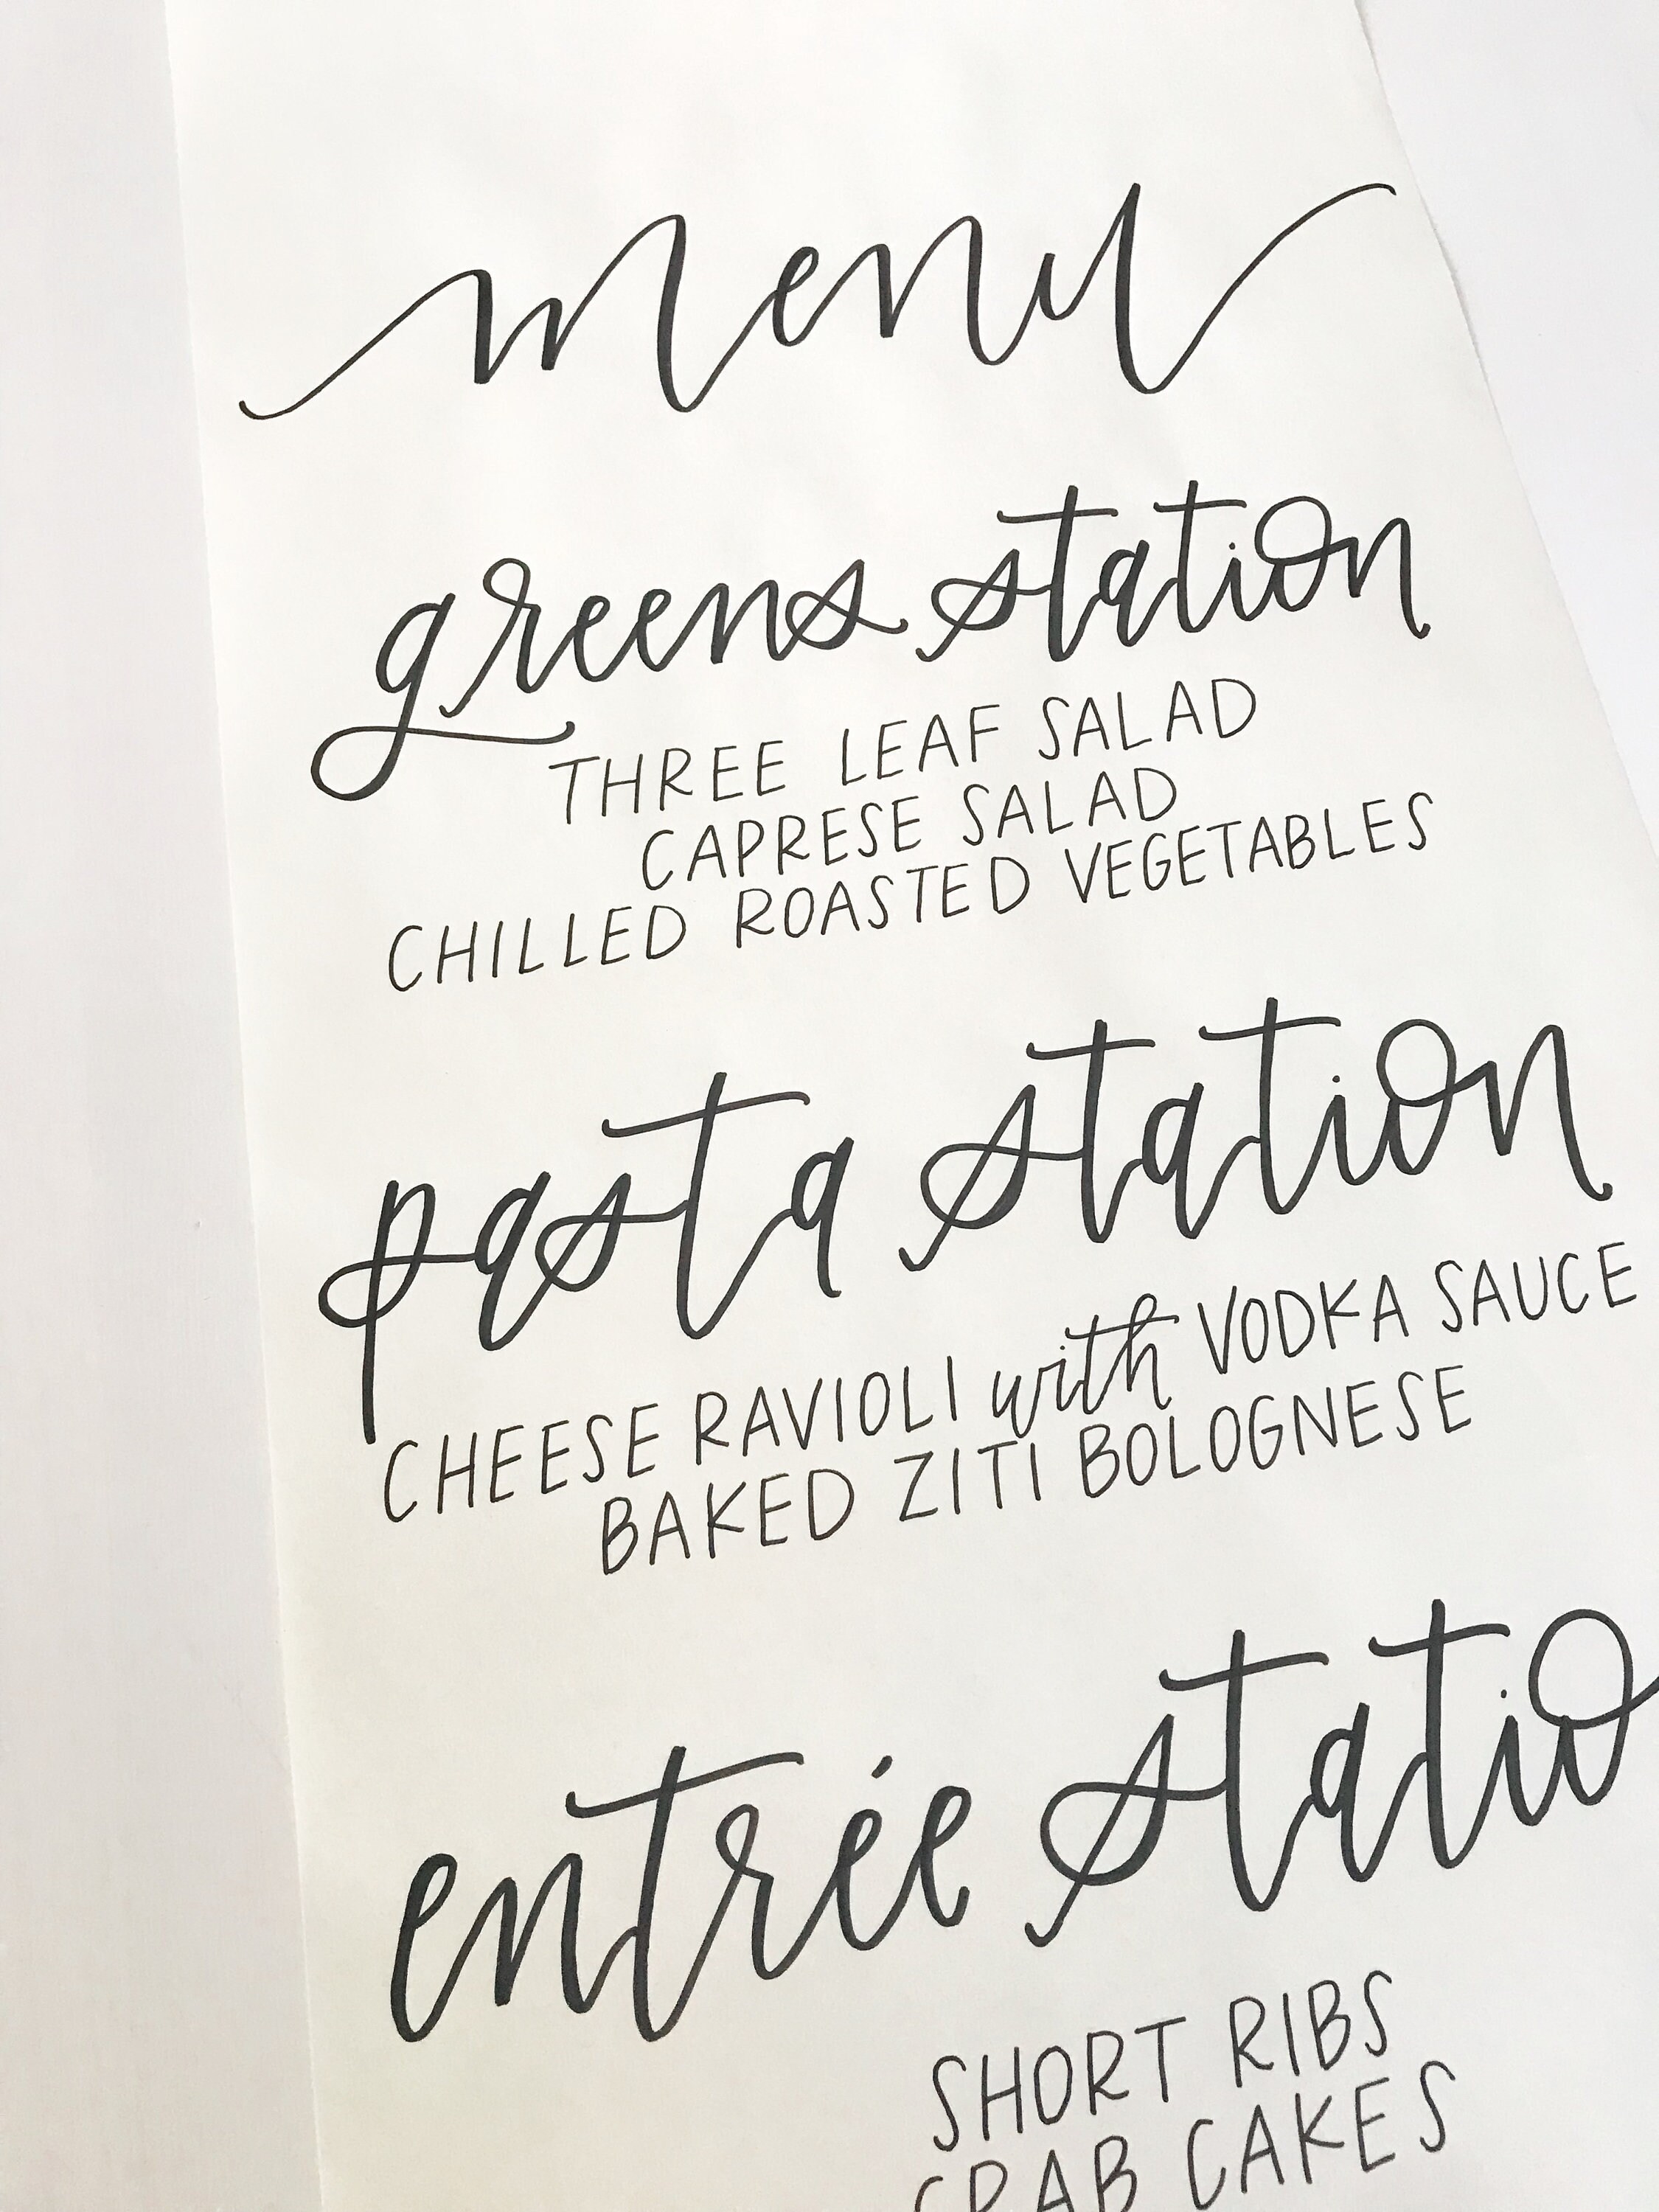 menu
greens station
THREE LEAF SALAD
CAPRESE SALAD
CHILLED ROASTED VEGETABLES
pasta station
CHEESE RAVIOLI with VODKA SAUCE
BAKED ZITI BOLOGNESE
entrée statio
SHORT RIBS
CRAB CAKES